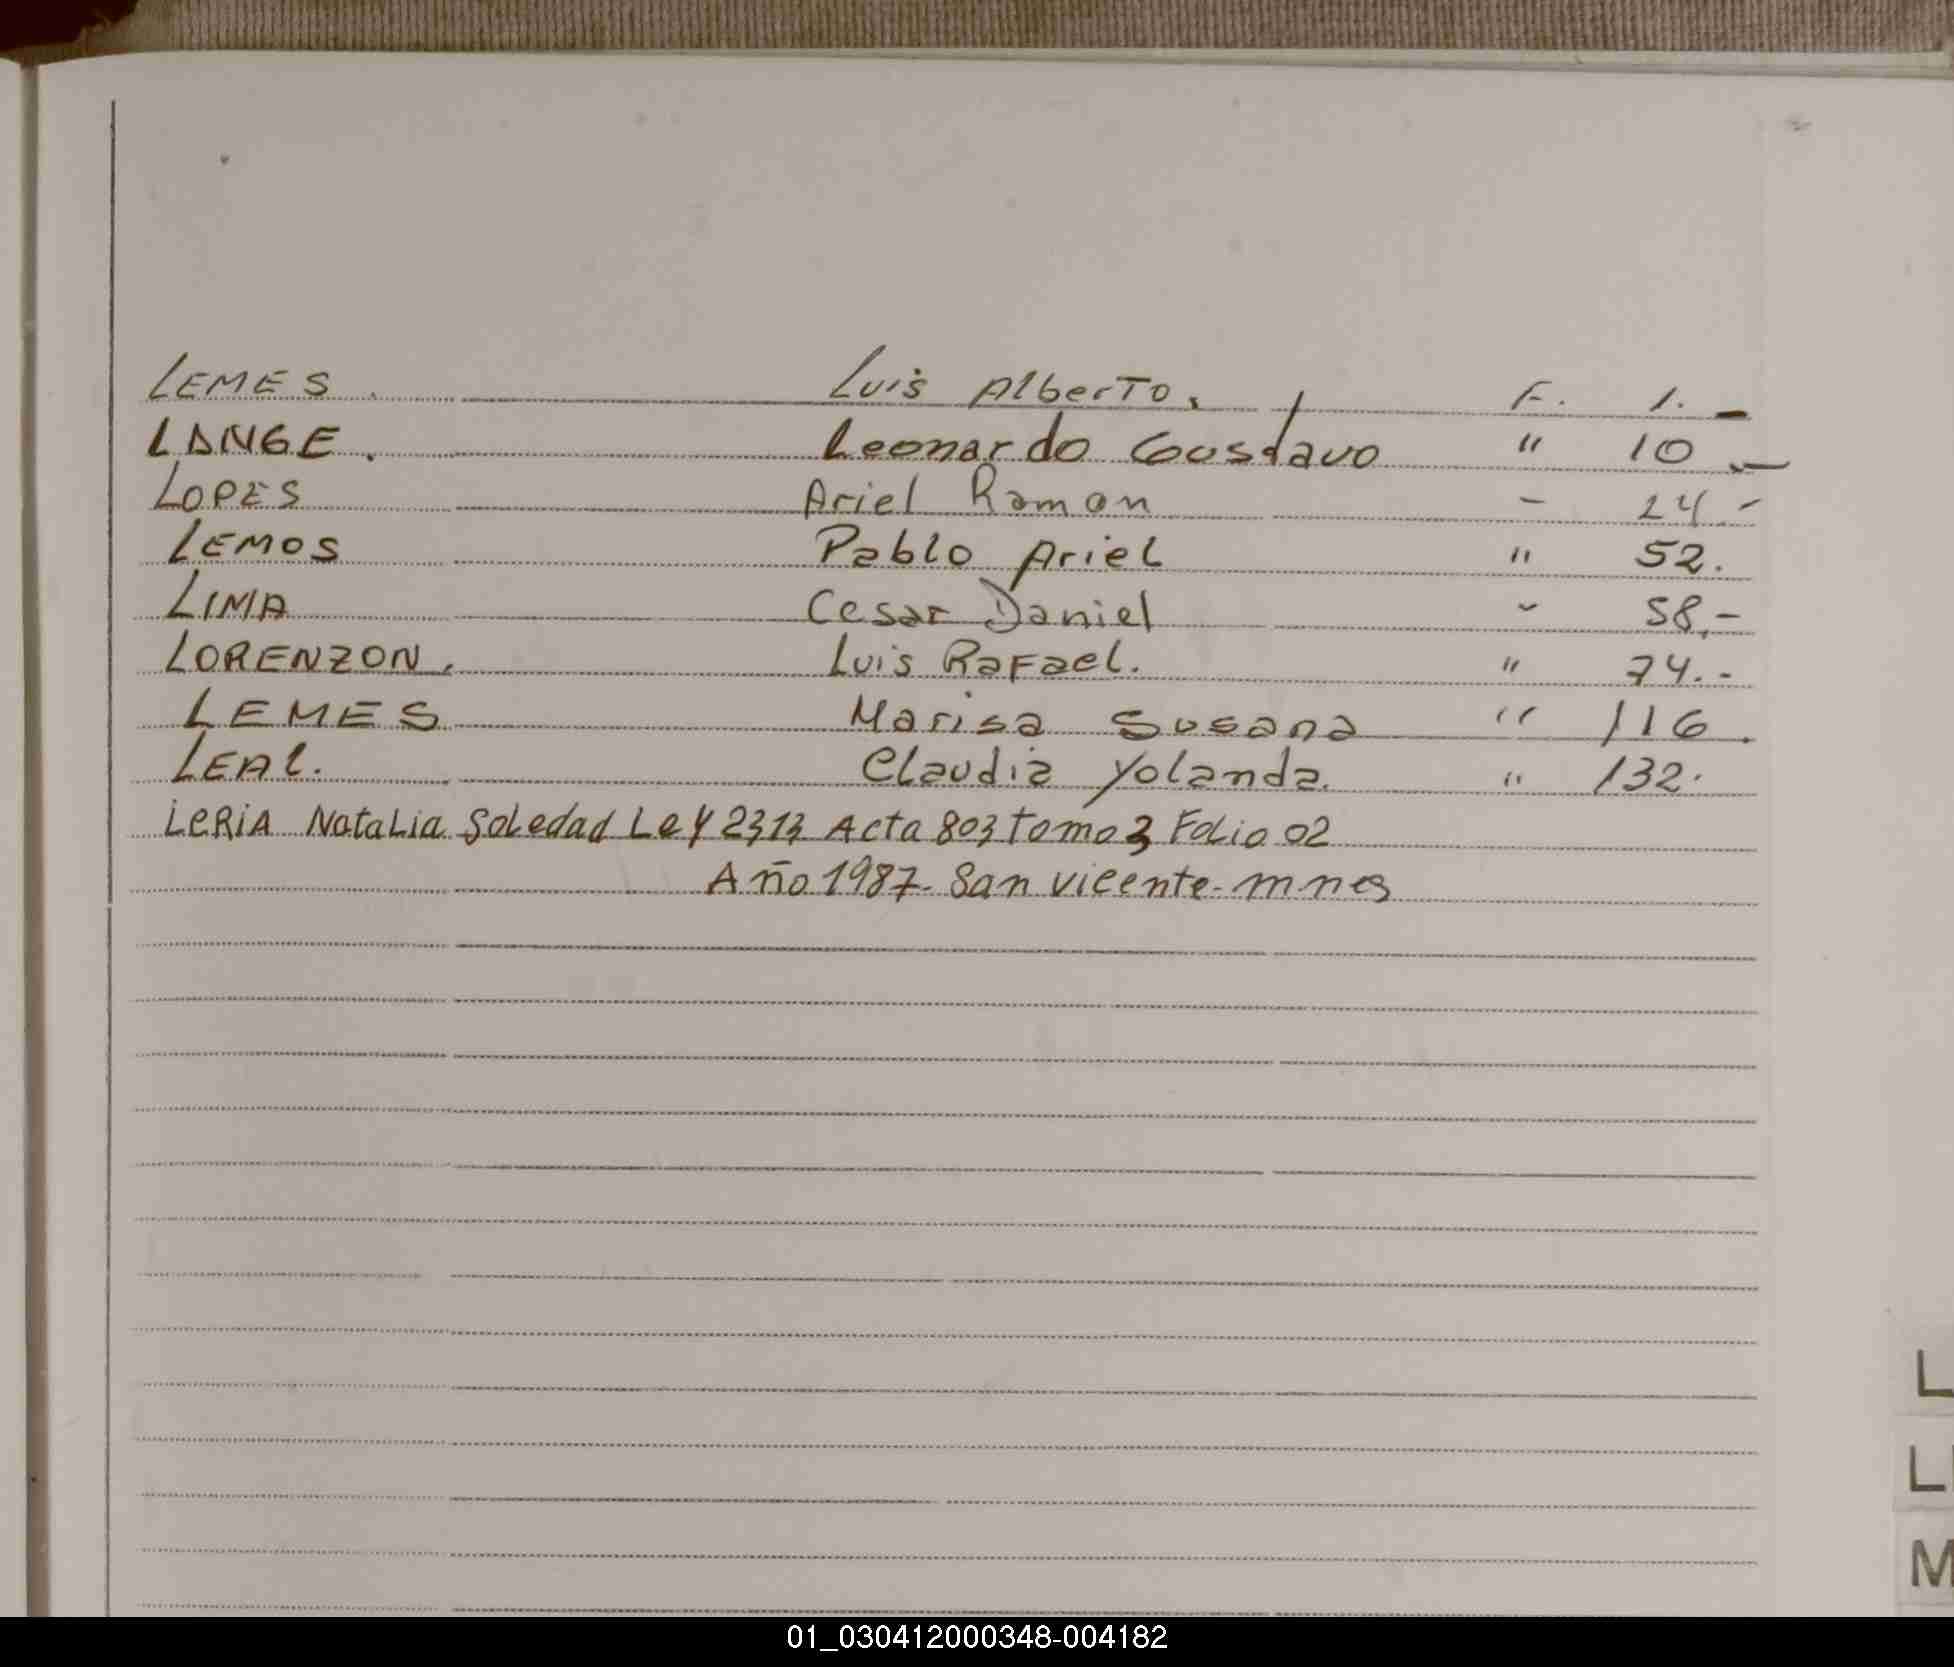 LEMES . Luis Alberto. F. 1. -
LANGE. Leonardo Gustavo " 10 .-
LOPES Ariel Ramon - 24.-
LEMOS Pablo Ariel " 52.
LIMA Cesar Daniel - 58,-
LORENZON. Luis Rafael. " 74.-
LEMES Marisa Susana " 116.
LEAL. Claudia Yolanda. " 132.
LERIA Natalia Soledad Ley 2313 Acta 803 tomo 3 Folio 02
Año 1987- San Vicente- mnes
L
L
M
01_030412000348-004182